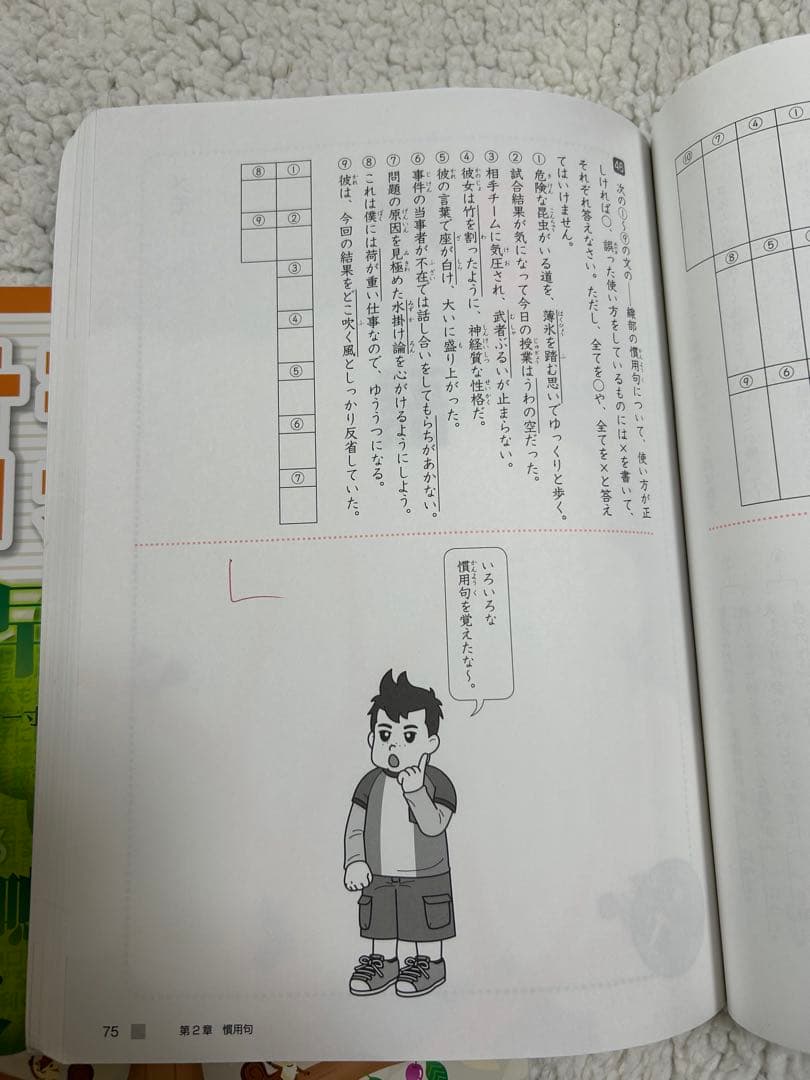 次の①〜⑨の文の――線部の慣用句について、使い方が正
しければ○、誤った使い方をしているものには×を書いて、
それぞれ答えなさい。ただし、全てを○や、全てを×と答え
てはいけません。
①危険な昆虫がいる道を、薄氷を踏む思いでゆっくりと歩く。
②試合結果が気になって今日の授業はうわの空だった。
③相手チームに気圧され、武者ぶるいが止まらない。
④彼女は竹を割ったように、神経質な性格だ。
⑤彼の言葉で座が白け、大いに盛り上がった。
⑥事件の当事者が不在では話し合いをしてもらちがあかない。
⑦問題の原因を見極めた水掛け論を心がけるようにしよう。
⑧これは僕には荷が重い仕事なので、ゆううつになる。
⑨彼は、今回の結果をどこ吹く風としっかり反省していた。
① ② ③ ④ ⑤ ⑥ ⑦
⑧ ⑨
いろいろな
慣用句を覚えたな〜。
75 第2章 慣用句
① ④ ⑦ ⑩
⑤ ⑧
⑥ ⑨